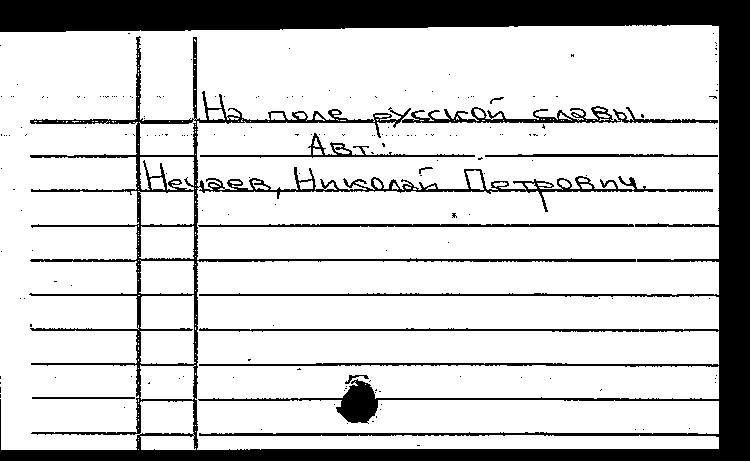 На поле русской славы.
Авт.:
Нечаев, Николай Петрович.